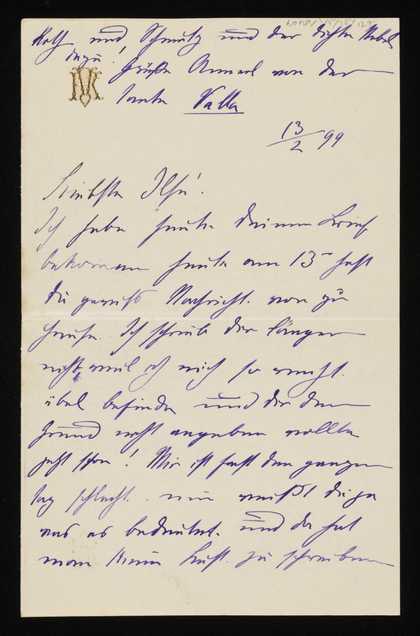 Koth und Schmutz und der dichte Nebel
dazu! Grüße Armed von der
Tante Valla
13/2 99
Liebste Ilse!
Ich habe heute deinen Brief
bekommen heute am 13 hast
du gewiß Nachricht von zu
Hause. Ich schrieb dir länger
nicht weil ich mich so recht
übel befinde und dir den
Grund erst angeben wollte
jetzt schon! Mir ist fast den ganzen
tag schlecht. nun weißt du ja
was es bedeutet. und da hat
man keine Lust zu schreiben